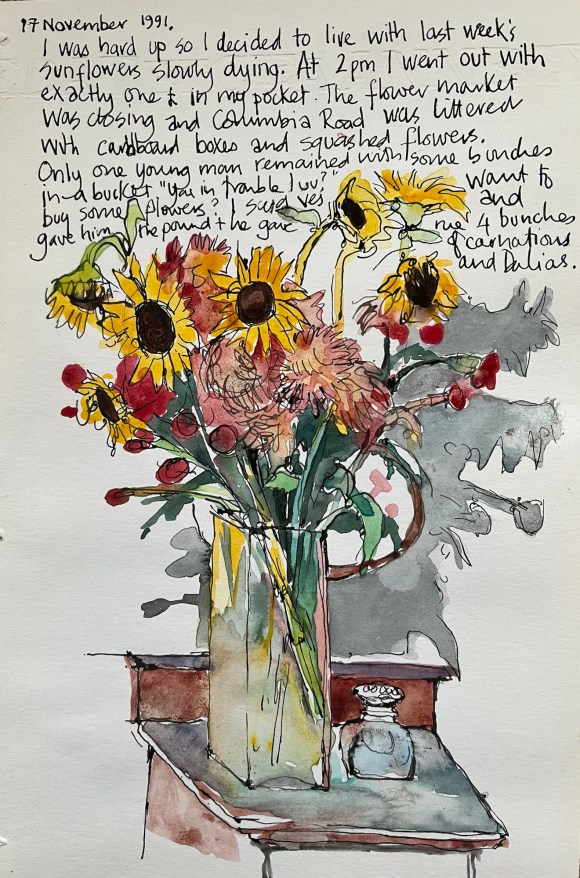 17 November 1991.
I was hard up so I decided to live with last week's
sunflowers slowly dying. At 2pm I went out with
exactly one £ in my pocket. The flower market
was closing and Columbia Road was littered
with cardboard boxes and squashed flowers.
Only one young man remained with some bunches
in a bucket "You in trouble luv?" want to
buy some flowers? I said yes and
gave him the pound + he gave me 4 bunches
of carnations
and Dalias.